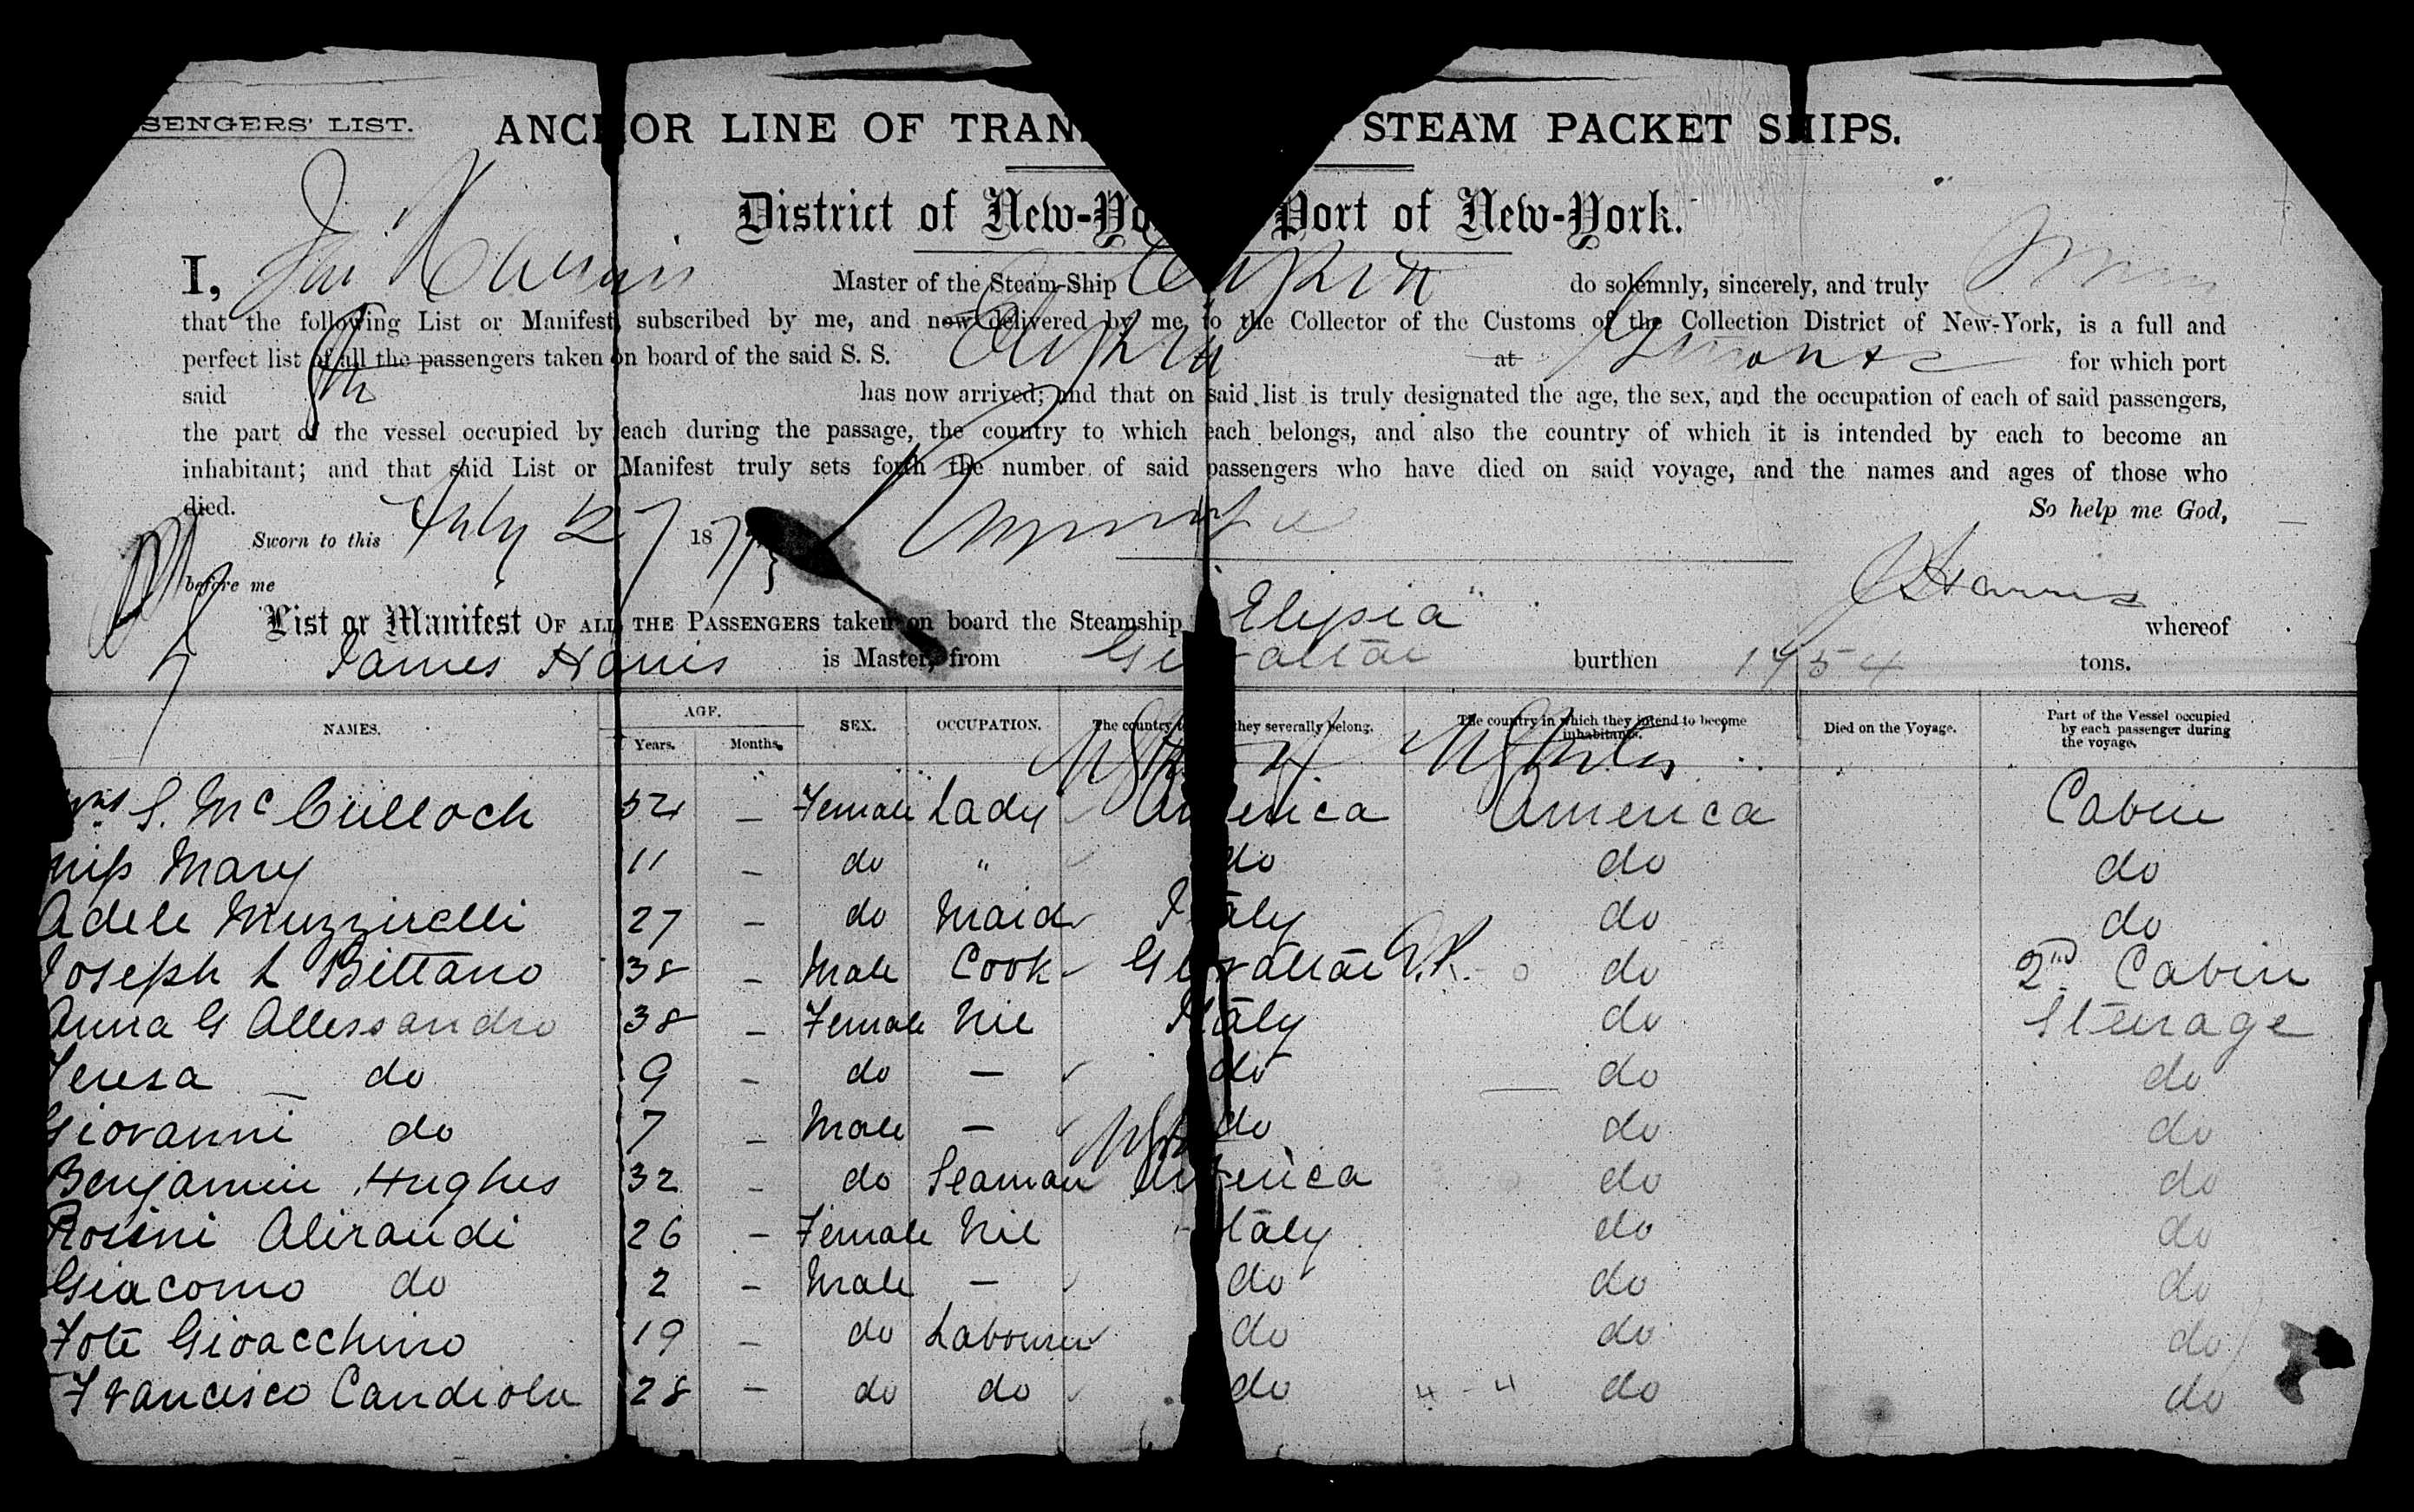 SENGERS' LIST.
ANCHOR LINE OF TRAN STEAM PACKET SHIPS.
District of New-Yo Port of New-York.
I, Master of the Steam-Ship Elysia do solemnly, sincerely, and truly
that the following List or Manifest, subscribed by me, and now delivered by me to the Collector of the Customs of the Collection District of New-York, is a full and
perfect list of all the passengers taken on board of the said S. S. Elysia at for which port
said has now arrived; and that on said list is truly designated the age, the sex, and the occupation of each of said passengers,
the part of the vessel occupied by each during the passage, the country to which each belongs, and also the country of which it is intended by each to become an
inhabitant; and that said List or Manifest truly sets forth the number of said passengers who have died on said voyage, and the names and ages of those who
died. So help me God,
Sworn to this July 27 1877
before me J Harris
List or Manifest OF ALL THE PASSENGERS taken on board the Steamship "Elysia" whereof
James Harris is Master, from Gi raltar burthen tons.
NAMES. AGE. SEX. OCCUPATION. The country t they severally belong. The country in which they intend to become inhabitants. Died on the Voyage. Part of the Vessel occupied by each passenger during the voyage.
Years. Months.
S. McCulloch 52 – Female Lady America America Cabin
Miss Mary 11 – do " do do do
Adele Muzzirelli 27 – do Maid Italy do do
Joseph L Bittano 38 – Male Cook Gibraltar do 2nd Cabin
Anna G Allessandro 38 – Female Nil Italy do Steerage
Teresa do 9 – do – do do do
Giovanni do 7 – Male – do do do
Benjamin Hughes 32 – do Seaman America do do
Rosini Alirandi 26 – Female Nil Italy do do
Giacomo do 2 – Male – do do do
Fote Gioacchino 19 – do Labourer do do do
Francisco Candiola 28 – do do do 4 - 4 do do